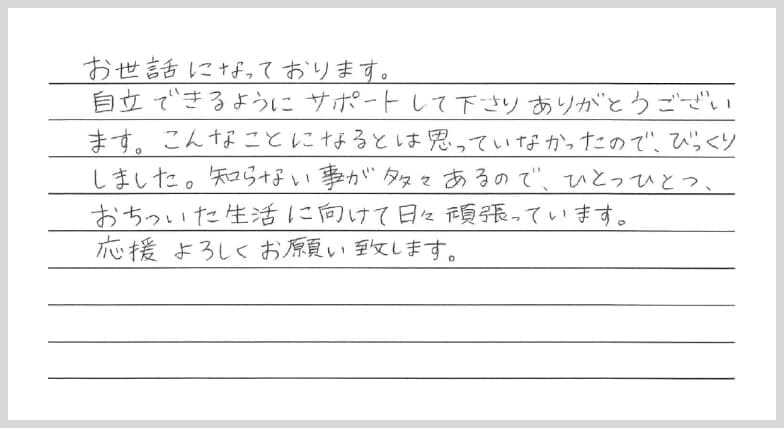 お世話になっております。
自立できるようにサポートして下さりありがとうござい
ます。こんなことになるとは思っていなかったので、びっくり
しました。知らない事が多々あるので、ひとつひとつ、
おちついた生活に向けて日々頑張っています。
応援よろしくお願い致します。